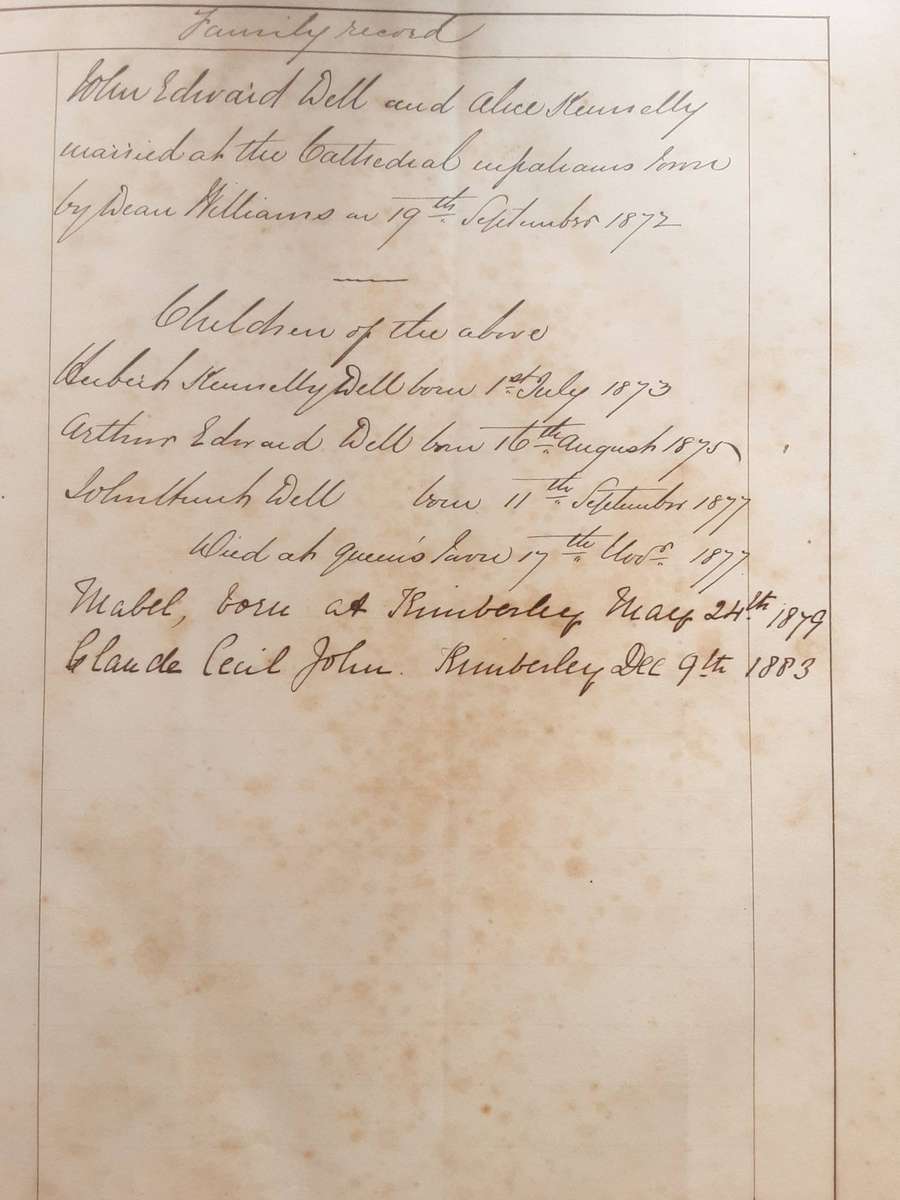 Family record
John Edward Dell and Alice Kennelly
married at the Cathedral Grahams Town
by Dean Williams on 19th September 1872
Children of the above
Herbert Kennelly Dell born 1st July 1873
Arthur Edward Dell born 16th August 1875
John Dell born 11th September 1877
Died at Queen's Town 17th Novr. 1877
Mabel, born at Kimberley May 24th 1879
Claude Cecil John. Kimberley Dec 9th 1883